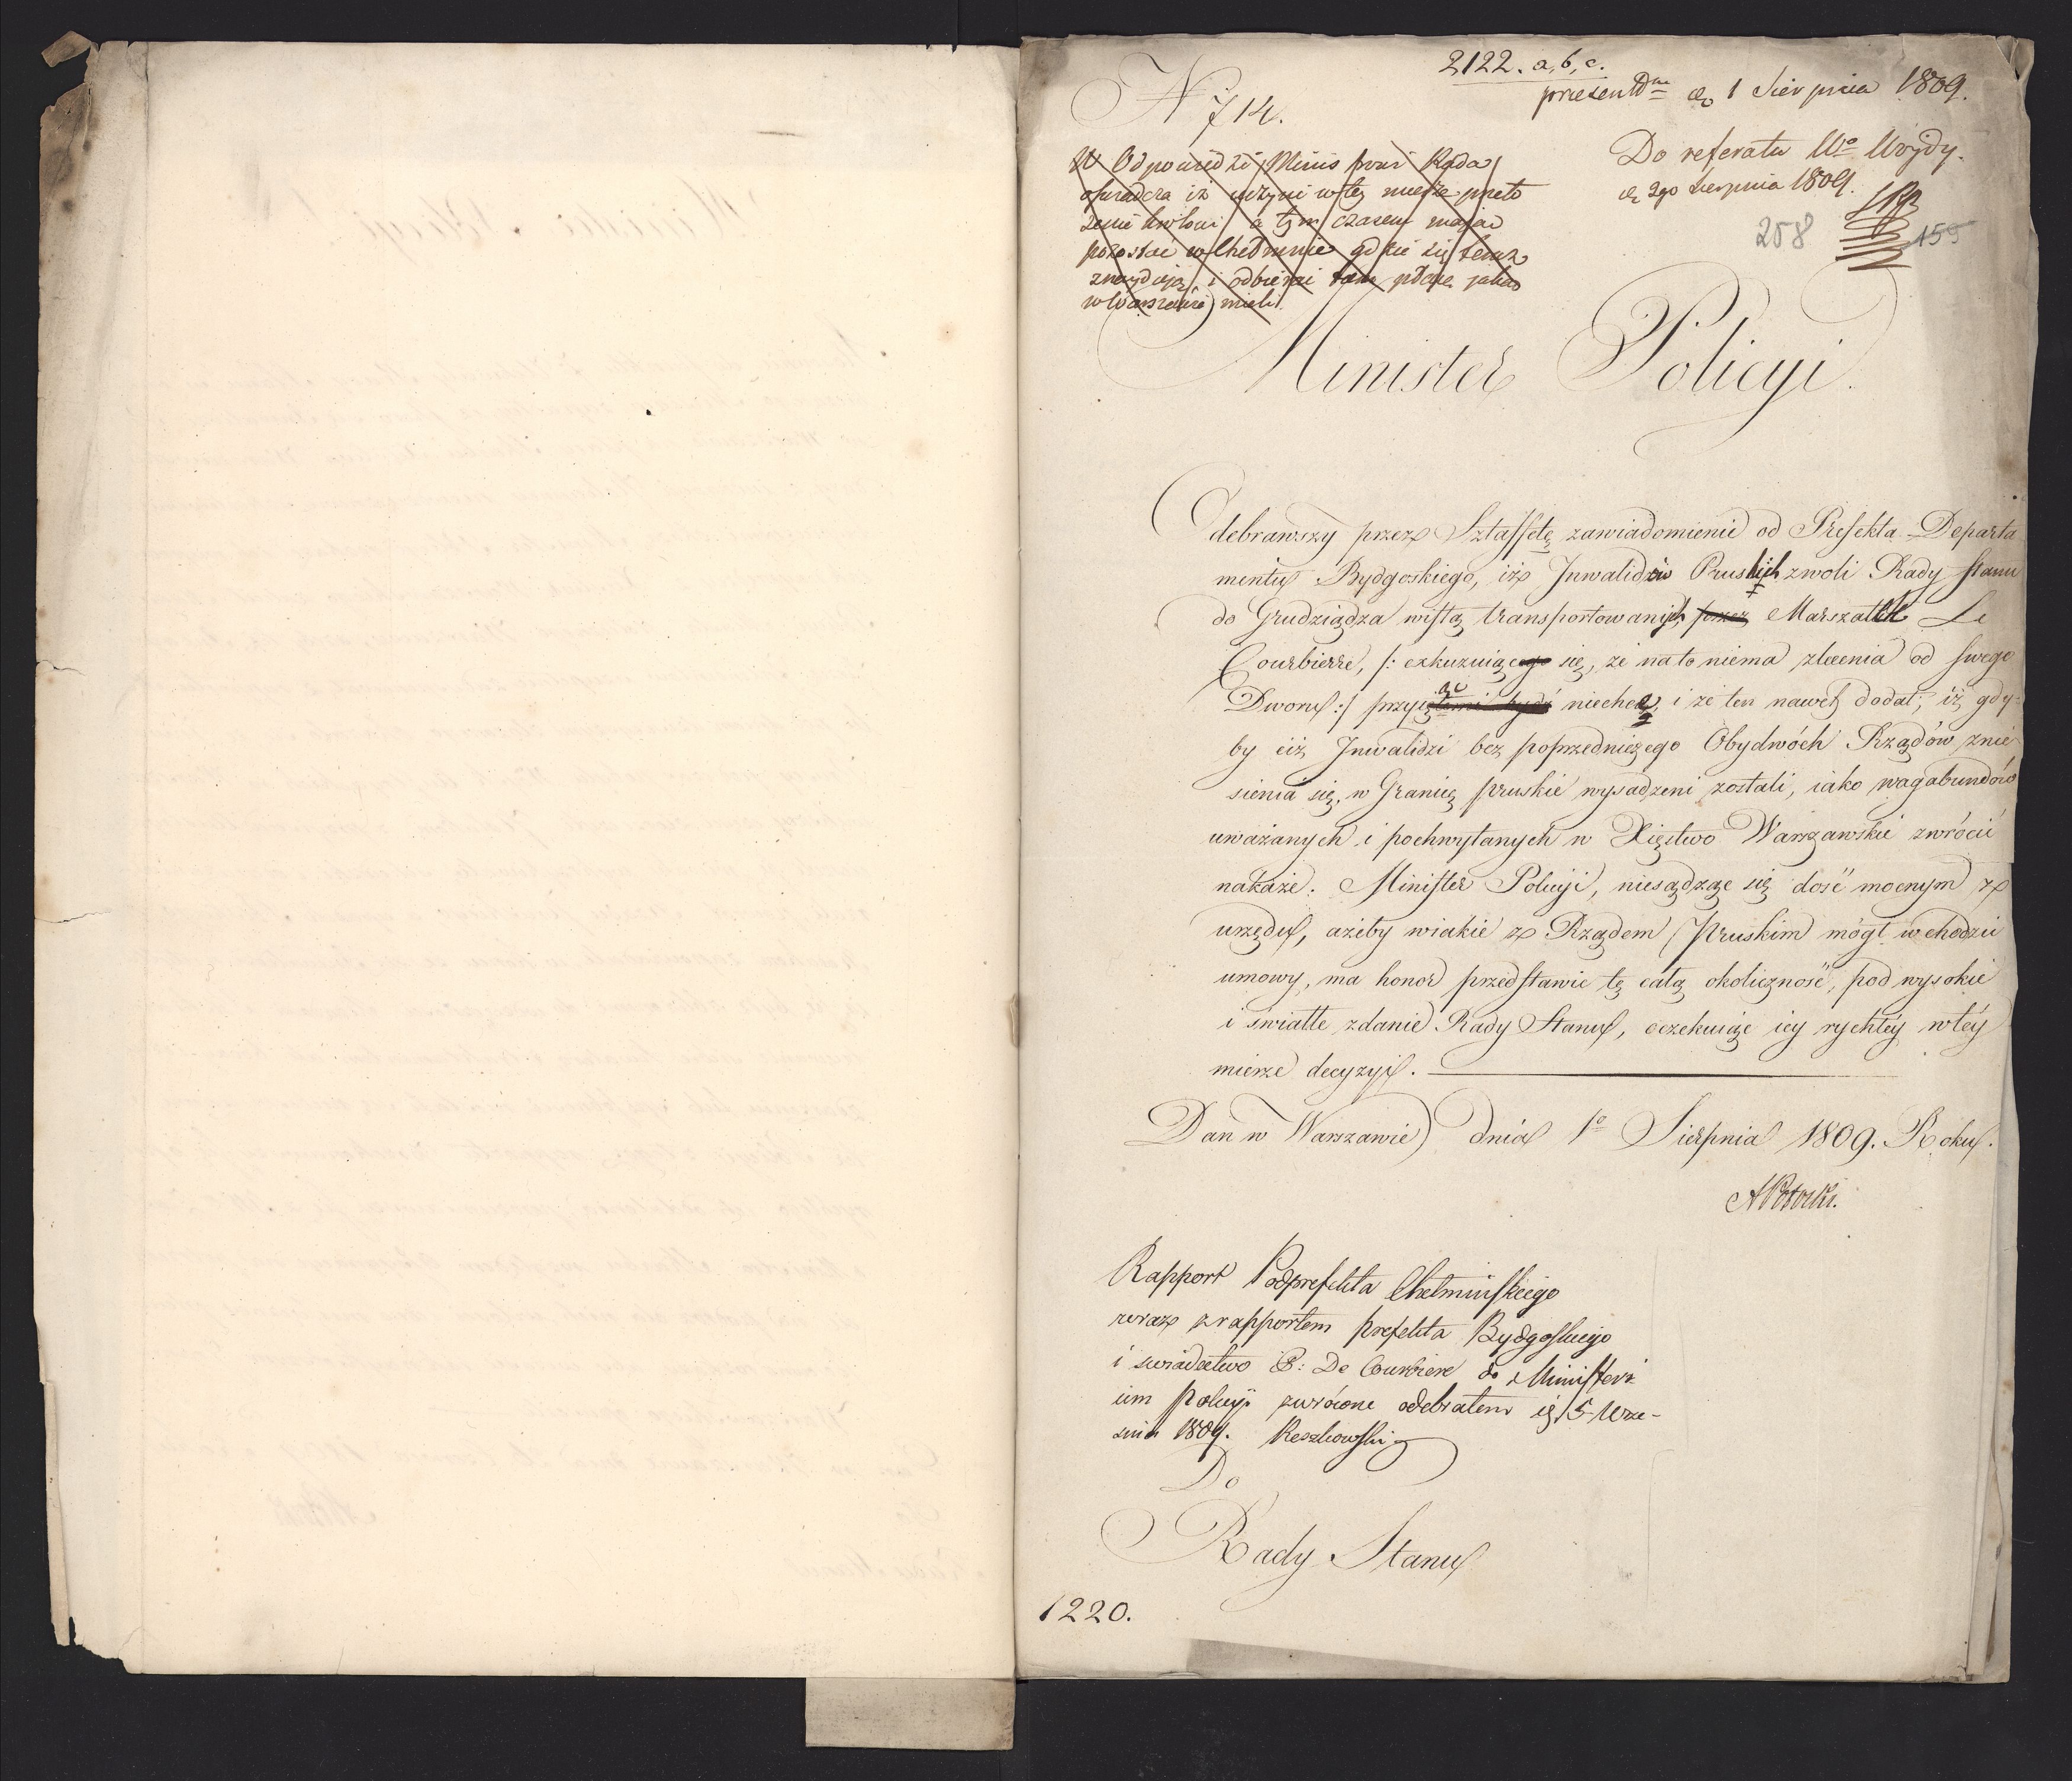 2122. a, b, c.
N 714.
praesentdm d. 1 Sierpnia 1809.
Do referatu Wo Woydy.
d. 2go Sierpnia 1809.
258
155
W Odpowiedzi Minis. pow: Rada
oświadcza iż uczyni w tey mierze przeto
żenie Królowi a tym czasem maiąc
pozostać w Chełmnie gdzie się teraz
znayduią, i odbierać tam płacę jaką
w Warszawie mieli.
Minister Policyi.
Odebrawszy przez Sztaffetę zawiadomienie od Prefekta Departa
mentu Bydgoskiego, iż Inwalidów Pruskich zwoli Rady Stanu
do Grudziądza wisłą transportowanych przez Marszałek Le
Courbierre, /: exkuzuiącego się, że na to niema zlecenia od swego
Dworu :/ przyiąć niechce, i że ten nawet dodał; iż gdy-
by ciż Inwalidzi bez poprzedniczego Obydwóch Rządów znie
sienia się, w Granicę pruskie wysadzeni zostali, iako wagabundów
uważanych i pochwytanych w Xięstwo Warszawskie zwrócić
nakaże. Minister Policyi, niesądząc się dość mocnym z
urzędu, ażeby wiakie z Rządem Pruskim mógł wchodzić
umowy, ma honor przedstawić tę całą okoliczność, pod wysokie
i światłe zdanie Rady Stanu, oczekuiąc iey rychłéy w téy
mierze decyzyi.
Dan w Warszawie dnia 1o Sierpnia 1809. Roku.
APotocki.
Rapport Podprefekta Chełmińskiego
wraz z rapportem prefekta Bydgoskiego
i świadectwo P: De Courbiere do Ministeri
um Policyi zwrócone odebrałem d. 5 Wrze-
śnia 1809. Reszkowski
Do
Rady Stanu
1220.